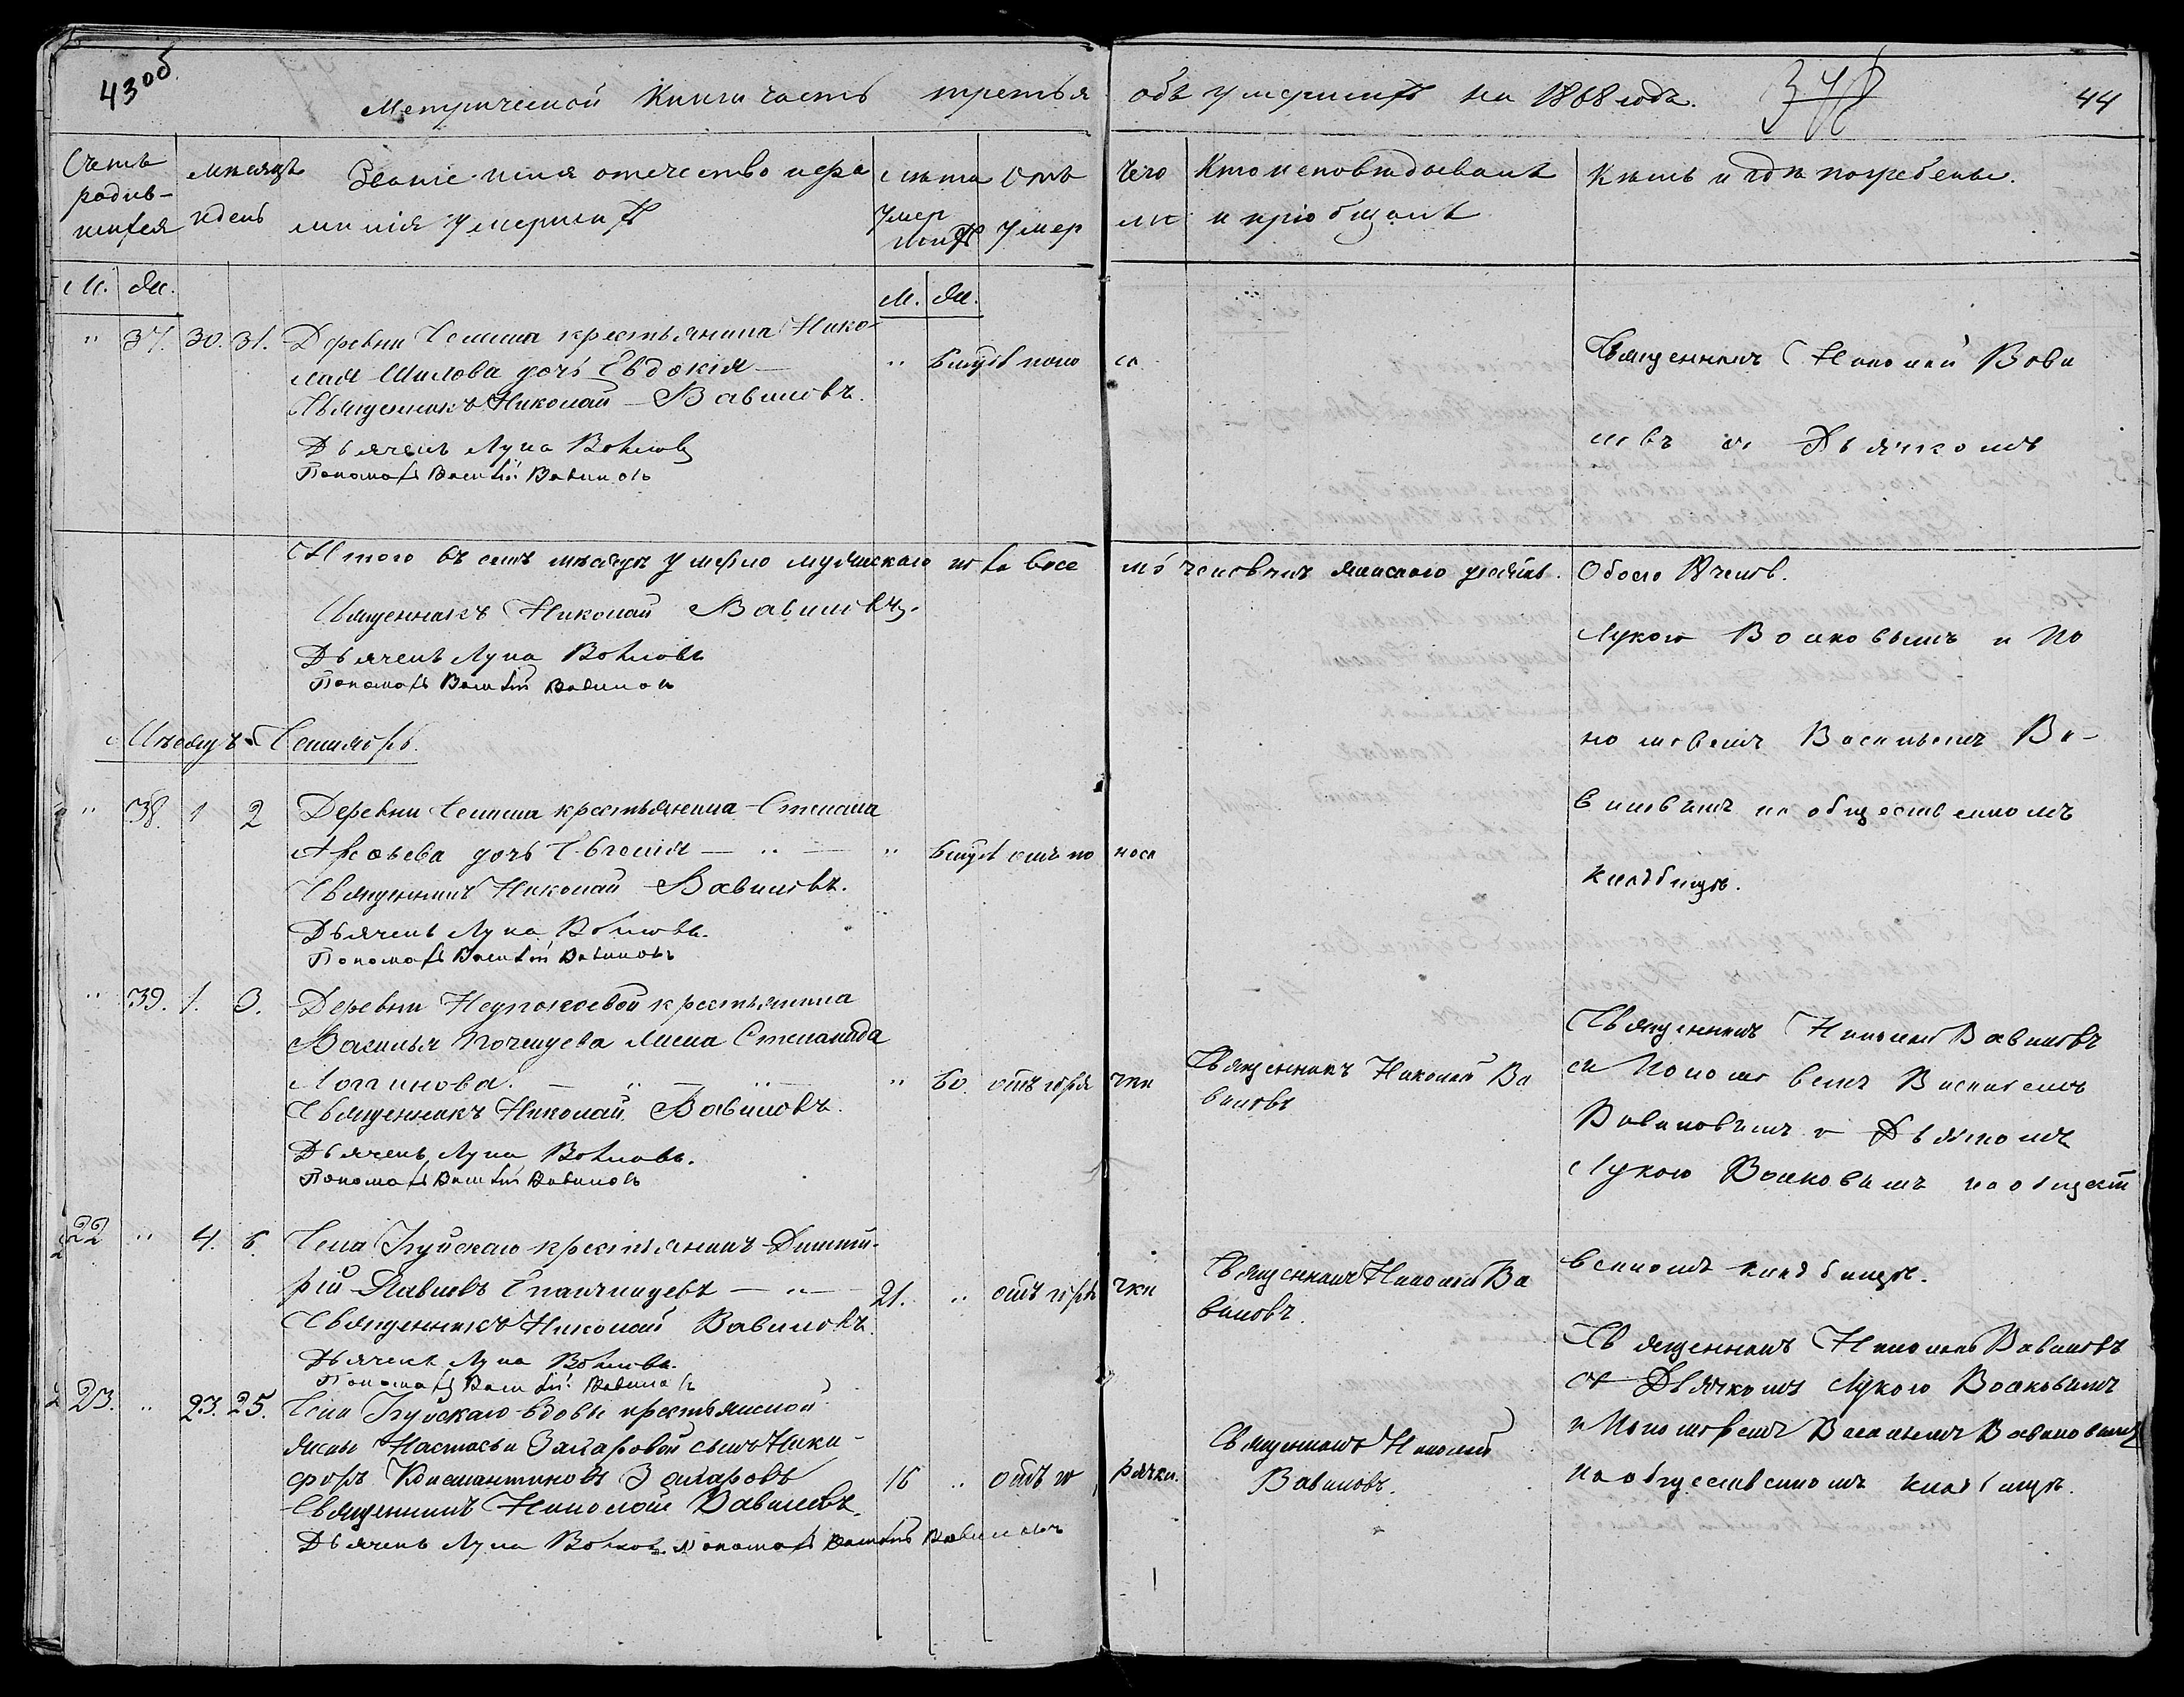 43об
Метрической Книги часть третья объ умершихъ на 1868 годъ.
348
44
Счетъ родив-шихся
Мѣсяцъ и день
Званіе имя отечество и фамилія умершихъ
Лѣта умершихъ
Отъ чего умерли
Кто исповѣдывалъ и пріобщалъ
Кѣмъ и гдѣ погребены.
М. Ж.
М. Ж.
" 37. 30. 31. Деревни крестьянина Нико-
лая Шилова дочь Евдокія — " 6 нідѣ поноса
Священникъ Николай Вавиловъ.
Дьячекъ Лука Волковъ
Пономарь Василій Вавиловъ
Священникъ Николай Вави
ловъ съ Дьячкомъ
Итого въ семъ мѣсяцѣ умерло мужескаго
человѣкъ женскаго Обоего
Священникъ Николай Вавиловъ.
Дьячекъ Лука Волковъ
Пономарь Василій Вавиловъ
Лукою Волковымъ и По
номаремъ Васильемъ Ва-
виловымъ на общественномъ
кладбищѣ.
Мѣсяцъ Сентябрь.
" 38. 1 2 Деревни крестьянина Степана
дочь Евгенія — " — " отъ поноса
Священникъ Николай Вавиловъ.
Дьячекъ Лука Волковъ.
Пономарь Василій Вавиловъ
" 39. 1. 3. Деревни Неупокоевой крестьянина
Василья жена Степанида
Логинова. — " — " — " 60. отъ горячки
Священникъ Николай Вавиловъ.
Дьячекъ Лука Волковъ.
Пономарь Василій Вавиловъ
Священникъ Николай Ва
виловъ
Священникъ Николай Вавиловъ
съ Пономаремъ Васильемъ
Вавиловымъ и Дьячкомъ
Лукою Волковымъ на общест
венномъ кладбищѣ.
22 " 4. 6. Села крестьянинъ Димит-
рій Павловъ Епанчинцевъ — " — 21. " отъ горячки
Священникъ Николай Вавиловъ.
Дьячекъ Лука Волковъ.
Пономарь Василій Вавиловъ
Священникъ Николай Ва
виловъ.
Священникъ Николай Вавиловъ
съ Дьячкомъ Лукою Волковымъ
и Пономаремъ Васильемъ Вавиловымъ
на общественномъ кладбищѣ.
23. " 23. 25. Села вдовы крестьянской
жены Настасьи Захаровой сынъ Ники-
форъ Константиновъ Захаровъ 16 " отъ горячки.
Священникъ Николай Вавиловъ.
Дьячекъ Лука Волковъ. Пономарь Василій Вавиловъ
Священникъ Николай
Вавиловъ.